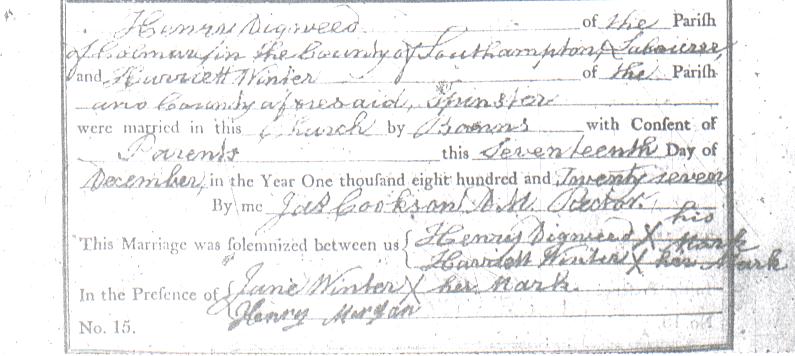 Henry Digweed of the Parish
of Colmer, in the County of Southampton, Labourer,
and Harriett Winter of the Parish
and County aforesaid, Spinster
were married in this Church by Banns with Consent of
Parents this Seventeenth Day of
December, in the Year One thousand eight hundred and Twenty seven
By me Jas Cookson A.M. Rector.
This Marriage was solemnized between us { Henry Digweed X his Mark
Harriett Winter X her Mark
In the Presence of { Jane Winter X her Mark.
Henry Morgan
No. 15.